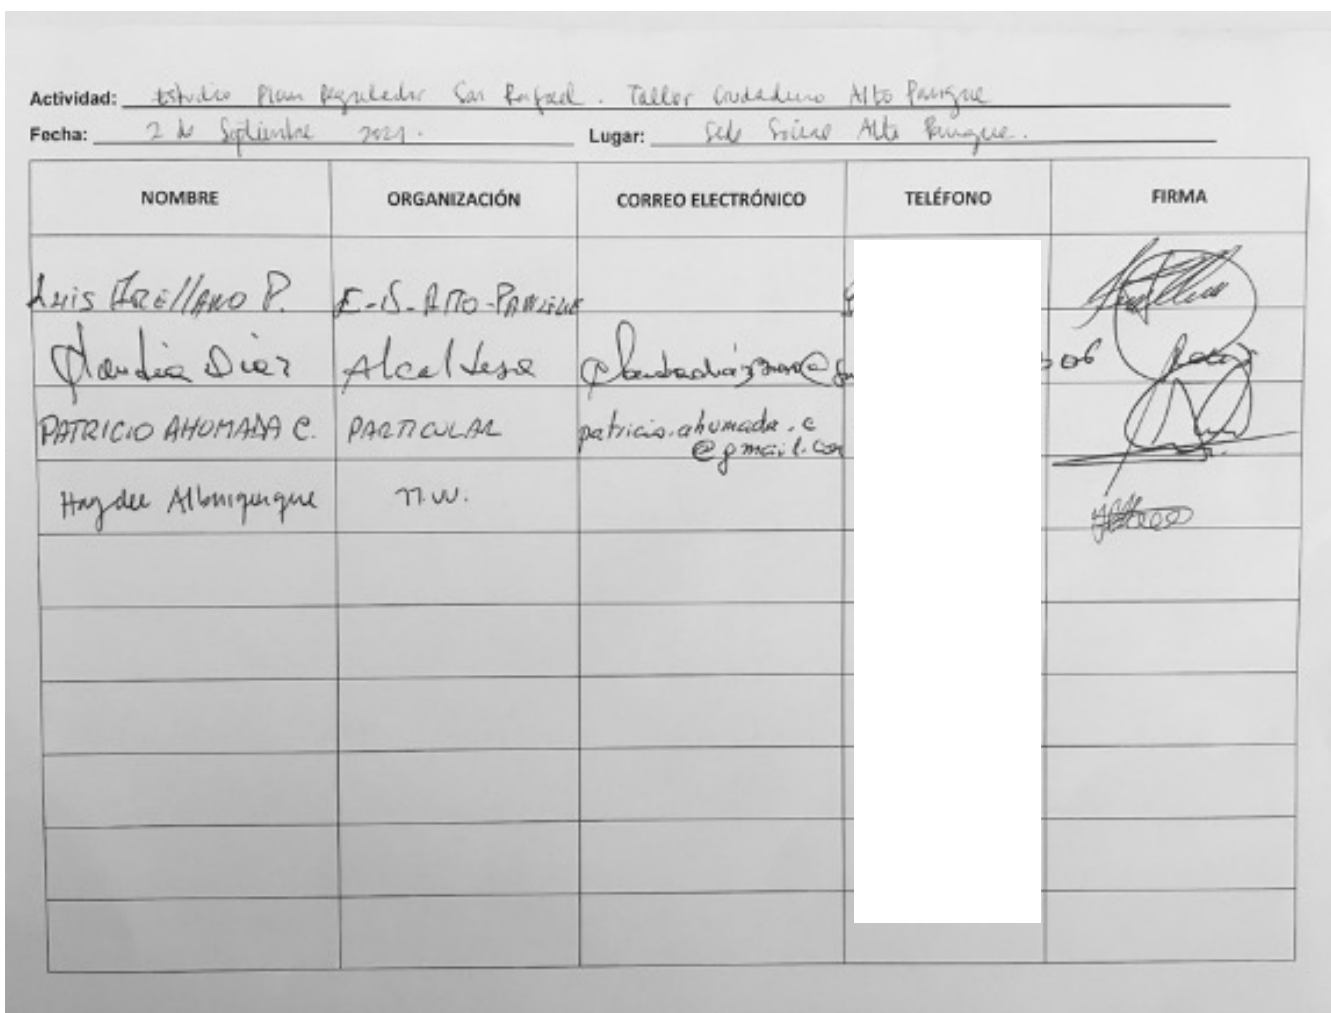 Actividad: Estudio Plan Regulador San Rafael. Taller Ciudadano Alto Pangue
Fecha: 2 de Septiembre 2021. Lugar: Sede Social Alto Pangue.
NOMBRE ORGANIZACIÓN CORREO ELECTRÓNICO TELÉFONO FIRMA
Luis Arellano P. ALTO-PANGUE
Claudia Diaz Alcaldesa
PATRICIO AHUMADA C. PARTICULAR patricio.ahumada.c
@gmail.com
Haydee Albuquerque